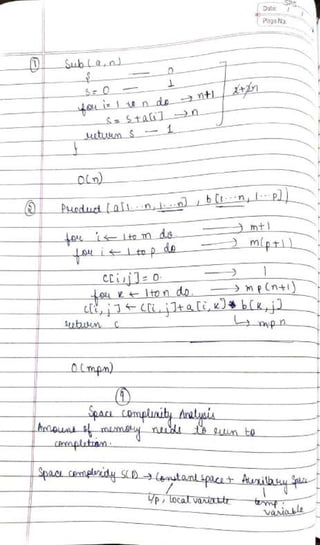 Date
Page No.
① Sub(a,n)
{ — 0
s=0 — 1
for i=1 to n do → n+1
s=s+a[i] → n
return s — 1
}
2+2n
O(n)
② Product (a[1..n, 1..n], b[1..n, 1..p])
for i ← 1 to m do → m+1
for i ← 1 to p do → m(p+1)
c[i,j]=0. → 1
for k ← 1 to n do → mp(n+1)
c[i,j] ← c[i,j]+a[i,k]*b[k,j]
return c ↳ mpn
O(mpn)
Space Complexity Analysis
Amount of memory needs to run to
completion.
Space complexity S(P) → Constant space + Auxillary Space
i/p, local variable temp. variable